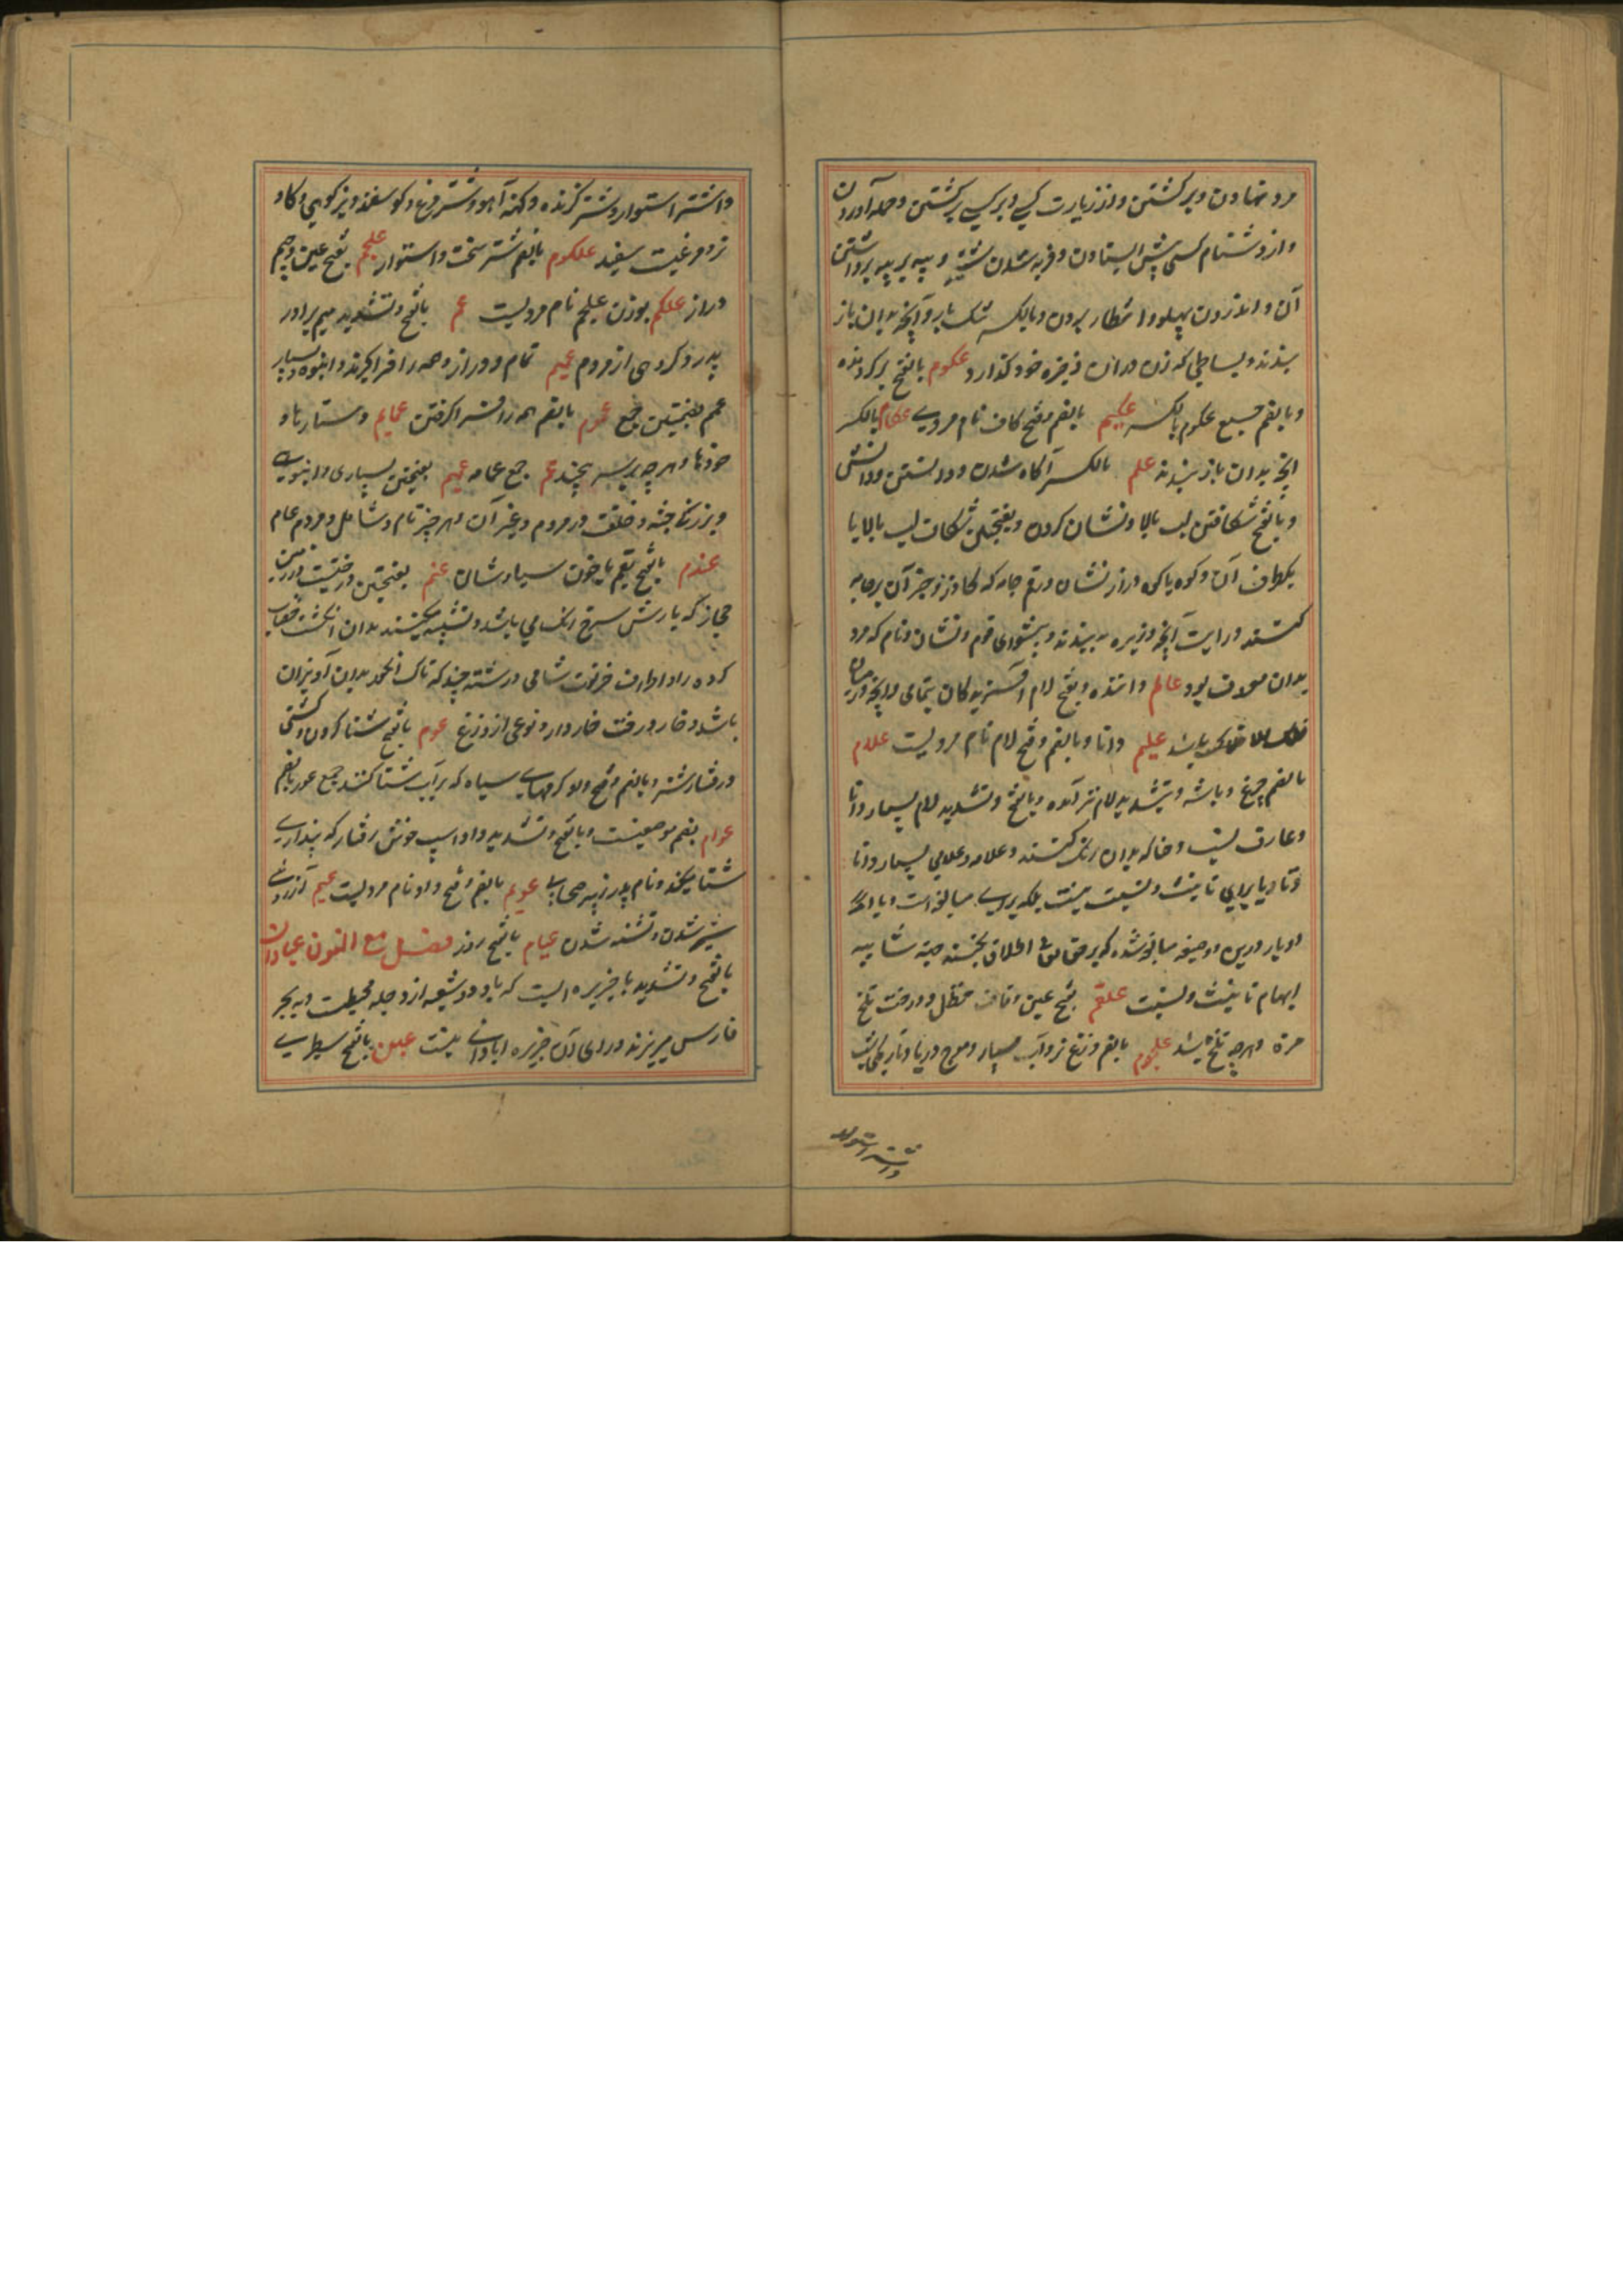 مرد نهادن و برگشتن و از زیارت کسی و بر کسی برگشتن و حمله آوردن
و از دشنام کسی پیش ایستادن و فربه شدن شتر و پیه بر پیه برداشتن
آن و اندرون پهلو و انتظار بردن و بالکسر تنگ بار و آنچه بدان باز
بندند و بساطی که زن در آن ذخیره خود گذارد عکوم بالفتح برگردنده
و بالضم جمع عکوم بالکسر عکیم بالضم و فتح کاف نام مردی عکام بالکسر
آنچه بدان باز بندند علم بالکسر آگاه شدن و دانستن و دانش
و بالفتح شکافتن لب بالا و نشان کردن و بفتحتین شکاف لب بالا یا
یکطرف آن و کوه یا کوه دراز نشان و رقم جامه که گازر و جز آن بر جامه
کنند و رایت آنچه و نیزه به بندند و پیشوای قوم و نشان و نام که مرد
بدان معروف بود عالم داننده و بفتح لام آفریدگان بتمامی و آنچه در میان
باشد علیم دانا و بالضم و فتح لام نام مردیست علام
بالضم چرغ و باشه و بتشدید لام نیز آمده و بالفتح و تشدید لام بسیار دانا
و عارف نسب و حنا که بدان رنگ کنند و علامه و علامی بسیار دانا
و تا و یا برای تانیث و نسبت نیست بلکه برای مبالغه است و یا
و یا درین دو صیغه مبالغه شده که بر حق تعالی اطلاق نکنند جهة شایبه
ایهام تانیث و نسبت علقم بفتح عین و قاف حنظل و درخت تلخ
مزه و هرچه تلخ باشد علجوم بالضم وزغ نر و آب بسیار و موج دریا و تاریکی شب
و اشتر استوار
و اشتر استوار و شتر گزنده و کهنه آهو و شتر مرغ و گوسفند و بز کوهی و گاو
نر و مرغیست سفید علکوم بالضم شتر سخت و استوار علجم بفتح عین و جیم
دراز علکم بوزن علجم نام مردیست عم بالفتح و تشدید میم برادر
پدر و گروهی از مردم عمیم تمام و دراز و همه را فراگیرنده و انبوه و بسیار
عمم بضمتین جمع عموم بالضم همه را فرا گرفتن عمایم دستارها و
خودها و هرچه بر سر پیچند عمم جمع عمامه عمیم بفتحتین بسیاری و انبوهی
و بزرگی جثه و خلقت در مردم و غیر آن و هر چیز تام و شامل و مردم عام
عندم بالفتح بقم یا خون سیاوشان عنم بفتحتین درختیست در زمین
حجاز که بارش سرخ میباشد و تشبیه میکنند بدان انگشت خضاب
کرده را و اطراف خرنوب شامی و رشته چند که تاک انگور بدان آویزان
باشد و خار درخت خاردار و نوعی از وزغ عوم بالفتح شنا کردن و کشتی
و رفتار شتر و بالضم و فتح واو کرمهای سیاه که بر آب شنا کنند جمع عومه بالضم
عوام بضم موضعیست و بالفتح و تشدید واو اسپ خوش رفتار که پنداری
شنا میکند و نام پدر زبیر صحابی عویم بالضم و فتح واو نام مردیست عیم آرزوی
شیر شدن و تشنه شدن عیام بالفتح روز فصل مع النون عبادان
بالفتح و تشدید با جزیره ایست که با دو شعبه از دجله محیطست و به بحر
فارس میریزند و ورای آن جزیره آبادانی نیست عبن بالفتح سطبری